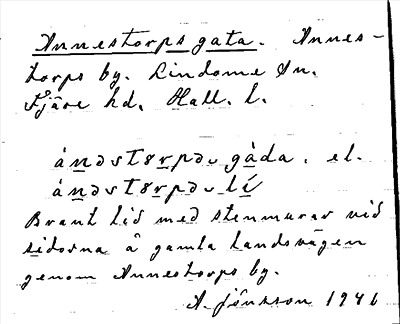 Annestorps gata. Annes-
torps by. Lindome sn.
Fjäre hd. Hall. l.
ánəstɵrpəs gàda. el.
ánəstɵrpəs lí
Brant lid med stenmurar vid
sidorna å gamla landsvägen
genom Annestorps by.
A. Jönsson 1946